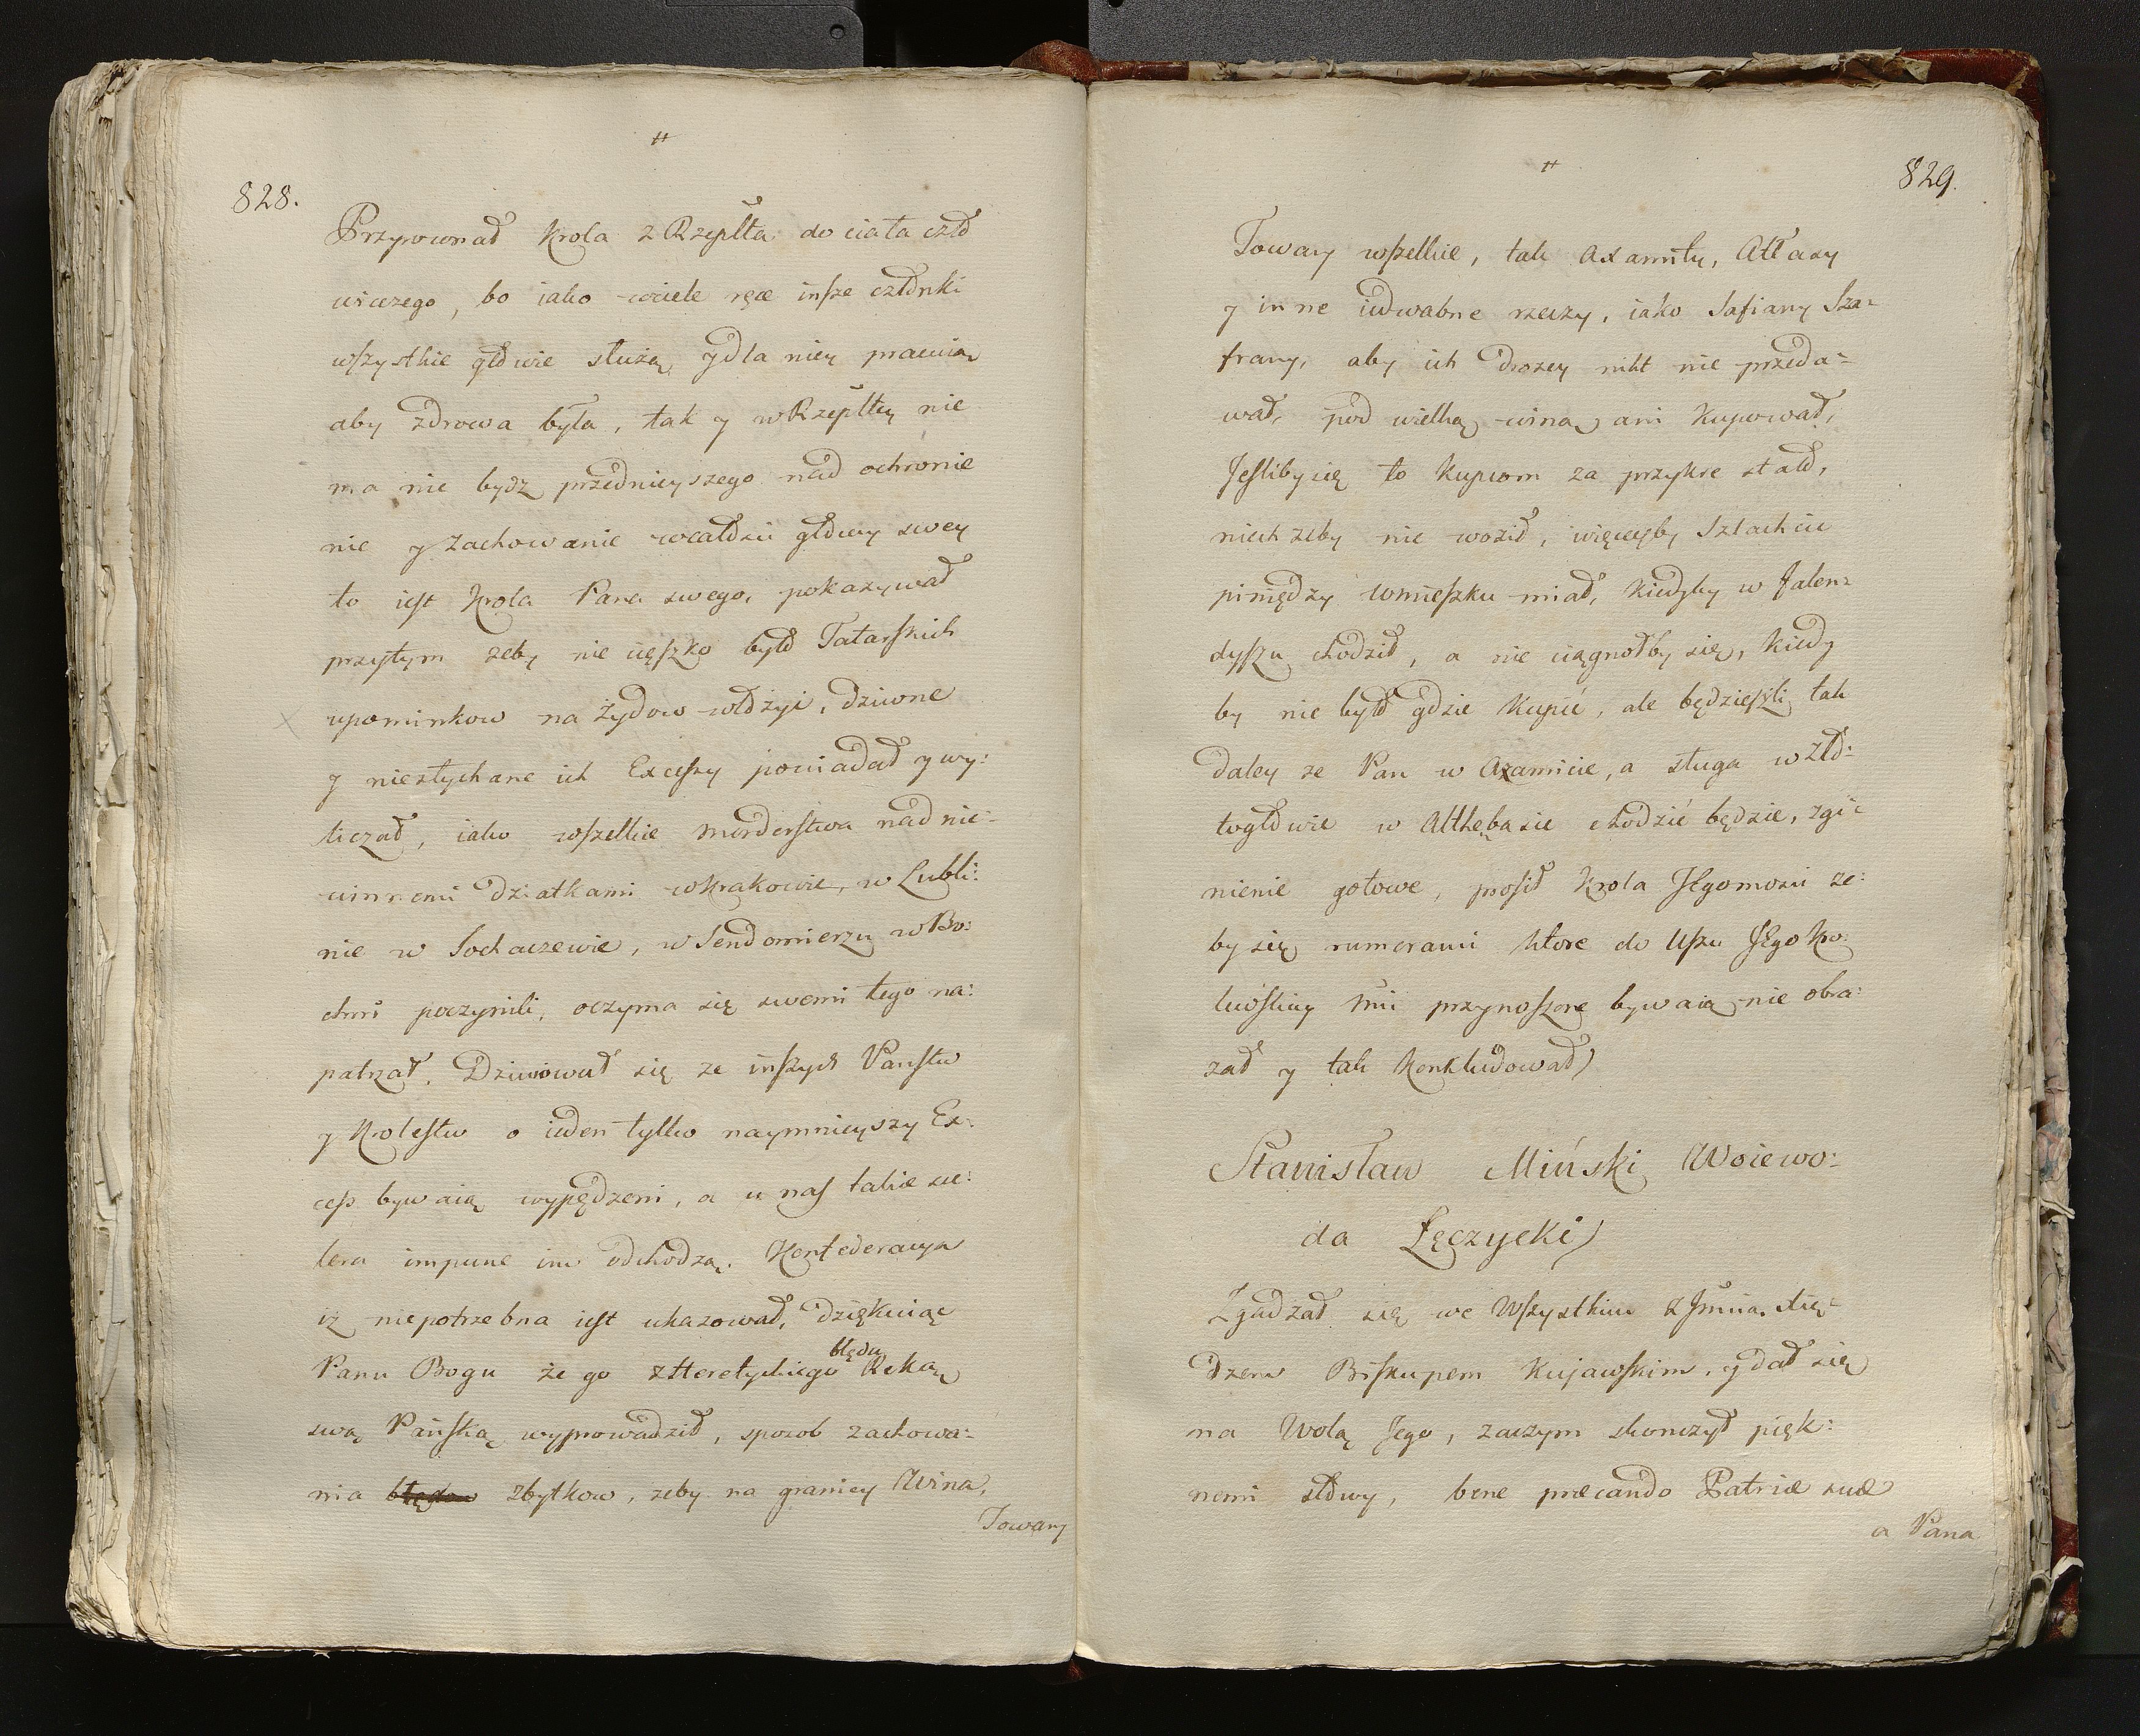 828.
Przyrownał Krola z Rzeplta do ciała czło
wieczego, bo iako wciele ręce insze członki
wszystkie głowie służą, y dla niey pracuią
aby zdrowa była, tak y w Rzeplltey nie
ma nic bydz przednieyszego nad ochronie
nie y zachowanie wcałości głowy swey
to iest Krola Pana swego, pokazywał
przytym zeby nie cięszko było Tatarskich
upominkow na Żydow włożyć, dziwne
y niesłychane ich Excessy powiadał y wy:
liczał, iako wszelkie morderstwa nad nie-
winnemi dziatkami w Krakowie, w Lubli:
nie w Sochaczewie, w Sendomierzu w Bo:
chni poczynili, oczyma się swemi tego na:
patrzał. Dziwował się ze inszych Panstw
y Krolestw o ieden tylko naymnieyszy Ex:
cess bywaią wypędzeni, a u nas takie sce:
lera impune im odchodzą. Konfederacya
iż niepotrzebna iest ukazował, dziękuiąc
Panu Bogu że go z Heretyckiego błędu Ręką
swą Pańską wyprowadził, sposob zachowa:
nia błędow zbytkow, zeby na granicy Wina,
Towary
829.
Towary wszelkie, tak Axamity, Atłasy
y inne iedwabne rzeczy, iako Safiany Sza-
frany, aby ich drozey nikt nie przeda-
wał, pod wielką winą ani kupował,
Jesliby się to kupcom za przykre stało,
niechzeby nie woził, więceyby Szlachcic
pimędzy w mieszku miał, kiedyby w Falen-
dyszu chodził, a nie ciągnołby się, kiedy
by nie było gdzie kupić, ale będzieszli tak
daley ze Pan w Axamicie, a sługa w zło:
togłowie w Althębasie chodzić będzie, zgi-
nienie gotowe, prosił Krola JEgomosci ze:
by się rumorami ktore do Uszu JEgo Kro:
lewskiey Mci przynoszone bywaią nie obra:
zał y tak konkludował
Stanisław Miński Woiewo:
da Łęczycki
Zgadzał się we Wszystkim z Jmcią Xię-
dzem Biskupem Kujawskim, y dał się
na Wolą Jego, zaczym skonczył pięk:
nemi słowy, bene præcando Patriæ suæ
a Pana